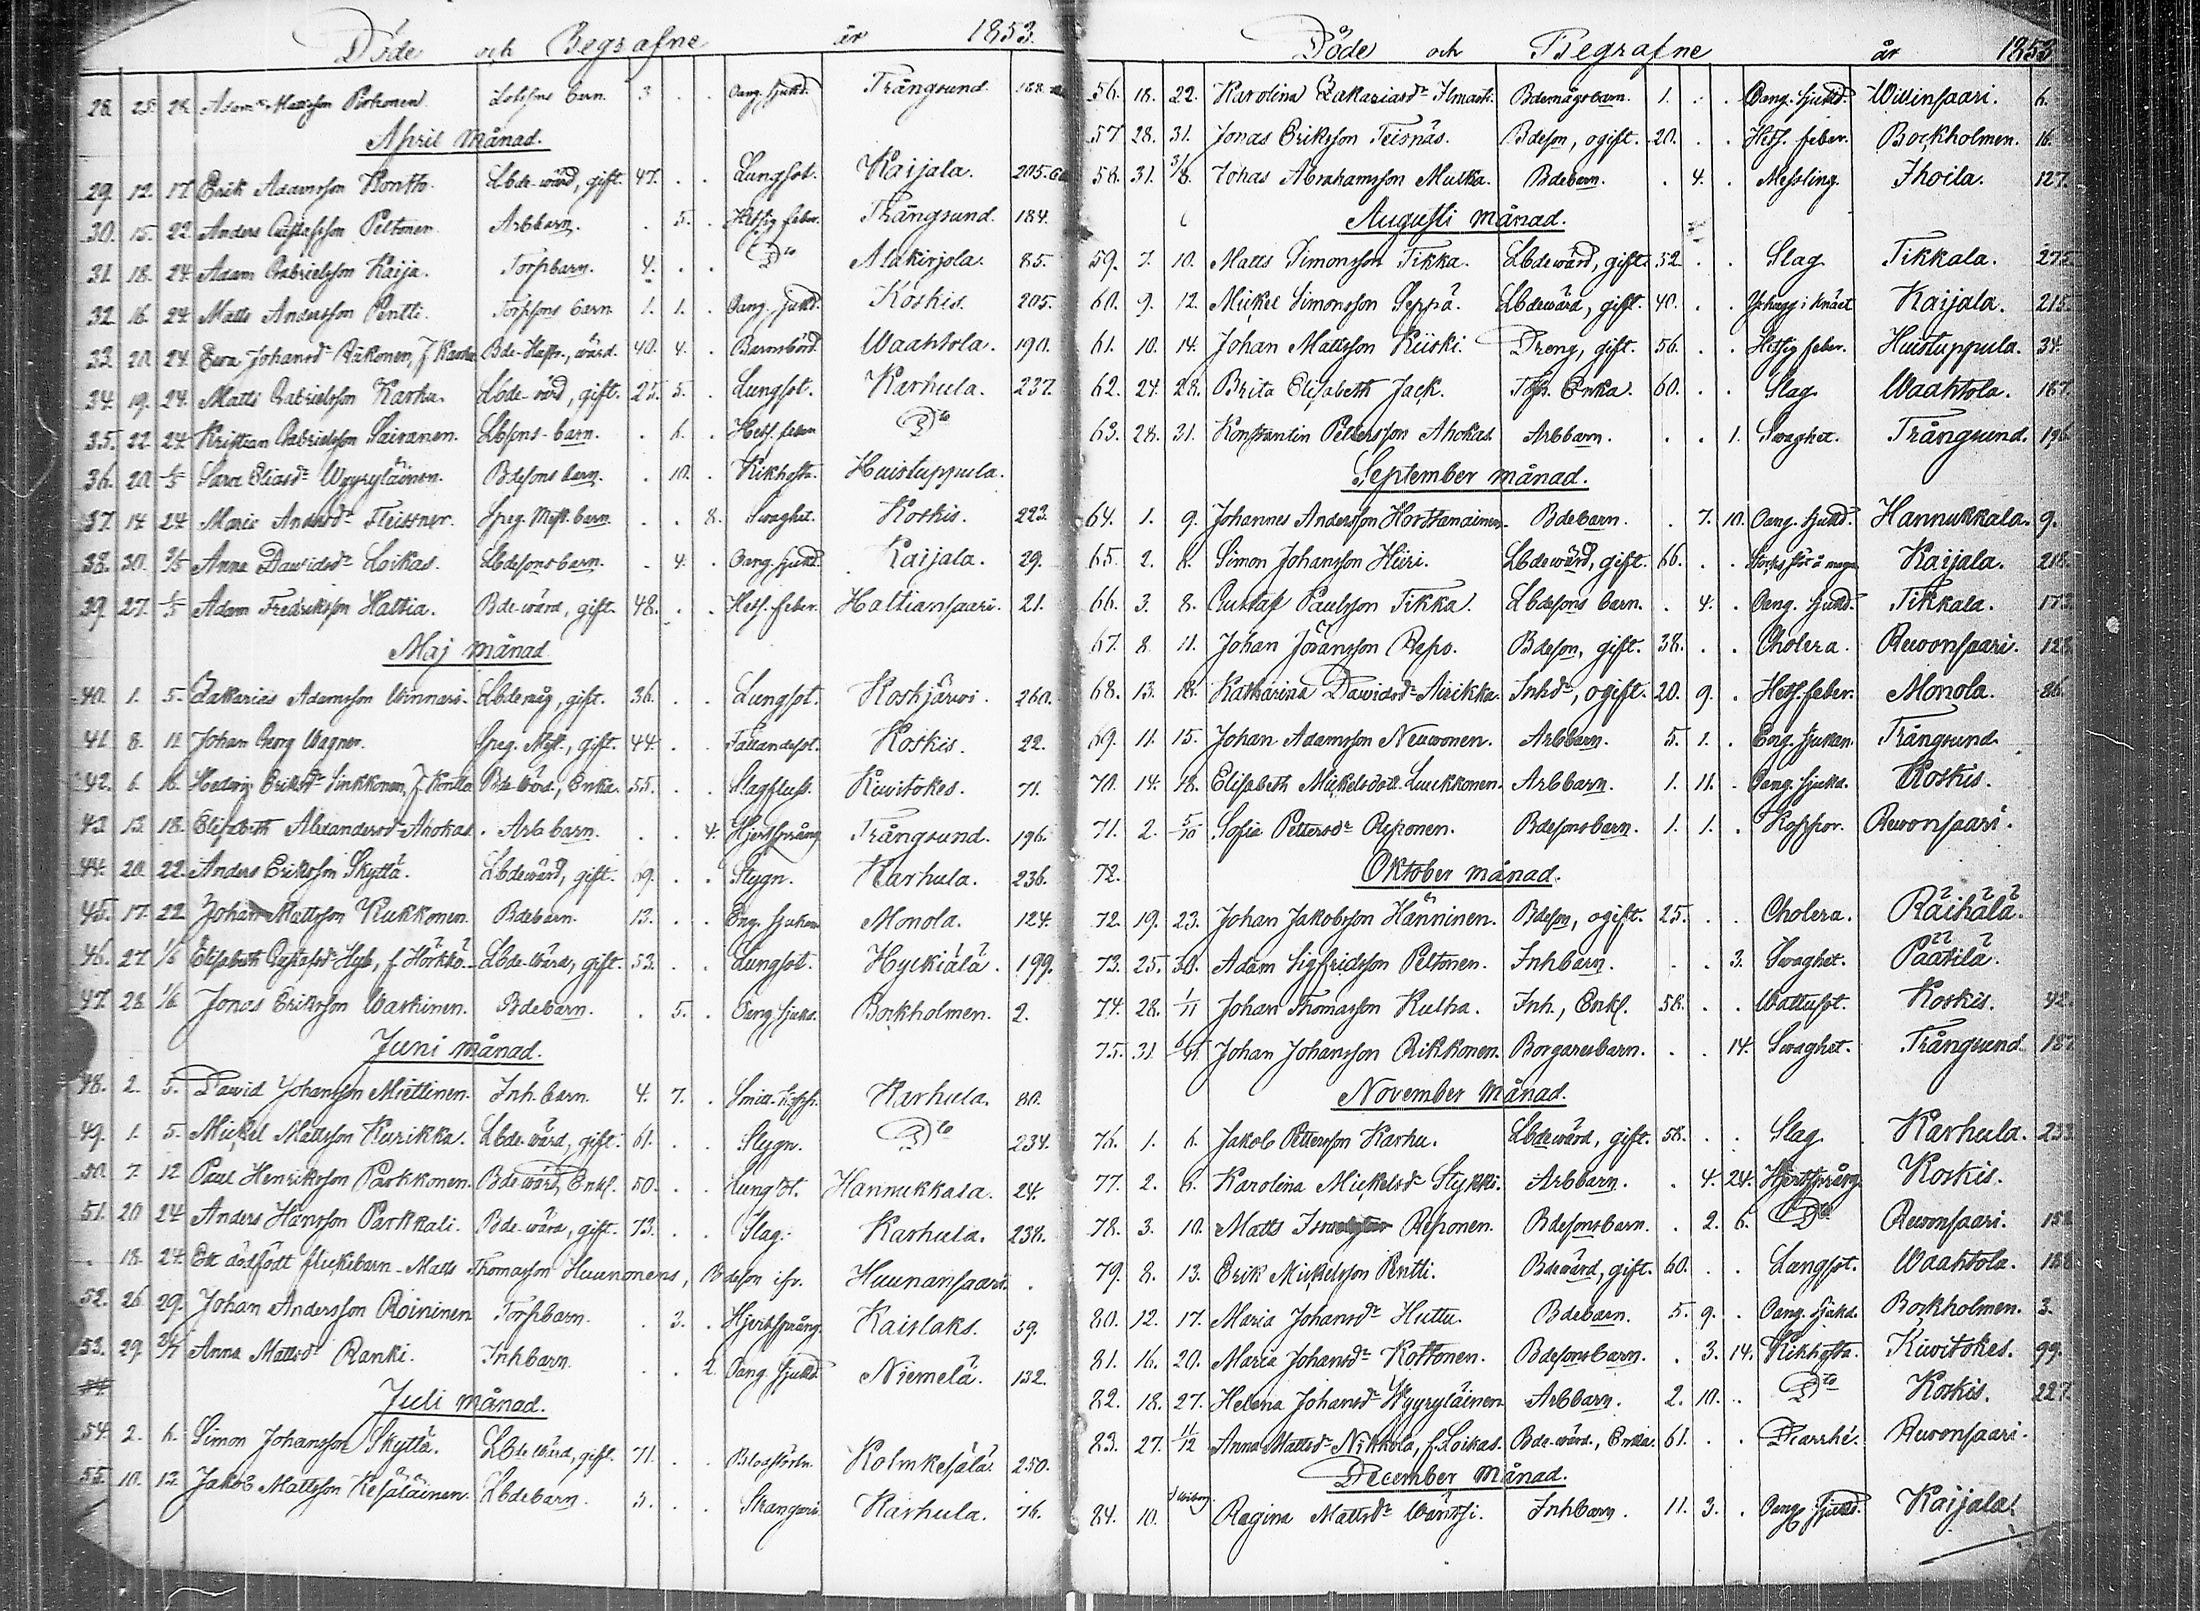 Döde och Begrafne år 1853.
28. 25. 28. Adam Mattsson Puhonen. Lbdsons barn. 3. . . Oang. sjukd. Trångsund. 188.
April månad.
29. 12. 17. Erik Adamsson Kontto. Lbde-wärd, gift. 47. . . Lungsot. Kaijala. 205.
30. 15. 22. Anders Gustafsson Peltonen. Arbbarn. . 5. . Hetsig feber. Trångsund. 184.
31. 18. 24. Adam Gabrielsson Kaija. Torpbarn. 4. . . Dto Alakirjola. 85.
32. 16. 24. Matts Andersson Pentti. Torpsons barn. 1. 1. . Oang. sjukd. Koskis. 205.
33. 20. 24. Ewa Johansdr Pukonen, f. Bde-Hustr., wärd. 40. 4. . Barnsbörd. Waahtola. 190.
34. 19. 24. Matts Gabrielsson Karhu. Lbde-wärd, gift. 25. 5. . Lungsot. Karhula. 237.
35. 22. 24. Kristian Gabrielsson Sairanen. Lbsons-barn. . 6. . Hets. feber Dto
36. 20. 1/5 Sara Eliasdr Wyyryläinen. Bdesons barn. . 10. . Kikhosta. Huistuppula.
37. 14. 24. Maria Andersdr Fleissner. Speg. Mest. barn. . . 8. Swaghet. Koskis. 223.
38. 30. 3/5 Anna Dawidsdr Loikas. Lbdesonsbarn. . 4. . Oang. sjukd. Kaijala. 29.
39. 27. 1/5 Adam Fredriksson Hattia. Bde-wärd, gift. 48. . . Hets. feber. Haltiansaari. 21.
Maj månad
40. 1. 5. Zakarias Adamsson Winnari. Lbdemåg, gift. 36. . . Lungsot. Koskjärwi. 260.
41. 8. 11. Johan Georg Wagner. Speg. Mest., gift. 44. . . Fallandesot. Koskis. 22.
42. 6. 16. Hedwig Eriksdr Sinkkonen, f. Konttu Bde-wärd, Enka. 55. . . Slagfluss. Kiwitokes. 71.
43. 13. 18. Elisabeth Alexandersdr Ahokas. Arb barn. . . 4. Hjertsprång Trångsund. 196.
44. 20. 22. Anders Eriksson Skyttä. Lbdewärd, gift. 69. . . Stygn. Karhula. 236.
45. 17. 22. Johan Mattsson Kukkonen. Bdebarn. 13. . . Eng. sjukan Monola. 124.
46. 27. 1/6 Elisabeth Gustafsdr Hyb, f. Hörkkö. Lbde-wärd, gift. 53. . . Lungsot. Hyckiälä. 199.
47. 28. 1/6. Jonas Eriksson Waskinen. Bdebarn. . 5. . Oang. sjukd. Bockholmen. 2.
Juni månad.
48. 2. 5. Dawid Johansson Miettinen. Inh. barn. 4. 7. . Karhula. 80.
49. 1. 5. Mickel Mattsson Kurikka. Lbde-wärd, gift. 61. . . Stygn. Dto 234.
50. 7. 12. Paul Henriksson Parkkonen. Bdewärd, Enkl. 50. . . Lungsot. Hannukkala. 24.
51. 20. 24. Anders Hansson Parkkali. Bde-wärd, gift. 73. . . Slag. Karhula. 238.
. 18. 24. Ett dödfödt flickebarn. Matts Thomasson Huunonens, Bdeson ifr. Huunansaari.
52. 26. 29. Johan Andersson Roininen Torpbarn. . 3. . Hjertsprång. Kaislaks. 39.
53. 29. 3/7 Anna Mattsdr Ranki. Inhbarn. . . 2. Oang. sjukd. Niemelä. 132.
54.
Juli månad.
54. 2. 6. Simon Johansson Skyttä. Lbdewärd, gift. 71. . . Blodförlu. Kolmkesälä. 250.
55. 10. 12. Jakob Mattsson Kesäläinen. Lbdebarn. 5. . . Karhula. 76.
Döde och Begrafne år 1853
56. 18. 22. Karolina Zakariasdr Ilmasti. Bdemågsbarn. 1. . . Oang. sjukd. Willinsaari. 6.
57. 28. 31. Jonas Eriksson Teisnäs. Bdeson, ogift. 20. . . Hets. feber. Bockholmen. 16.
58. 31. 3/8. Johas Abrahamsson Mulka. Bdebarn. . 4. . Messling. Ihoila. 127.
Augusti månad.
59. 7. 10. Matts Simonsson Tikka. Lbdewärd, gift. 52. . . Slag. Tikkala. 275.
60. 9. 12. Mickel Simonsson Seppä. Lbdewärd, gift. 40. . . Yxhugg i knäet Kaijala. 215.
61. 10. 14. Johan Mattsson Kiiski. Dreng, gift. 56. . . Hetsig feber. Huistuppula. 34.
62. 24. 28. Brita Elisabeth Jack. Tfr. Enka. 60. . . Slag Waahtola. 187.
63. 28. 31. Konstantin Pettersson Ahokas. Arbbarn. . . 1. Swaghet. Trångsund. 196.
September månad.
64. 1. 9. Johannes Andersson Horttanainen. Bdebarn. . 7. 10. Oang. sjukd. Hannukkala. 9.
65. 2. 8. Simon Johansson Hiiri. Lbdewärd, gift. 66. . . Kaijala. 218.
66. 3. 8. Gustaf Paulsson Tikka. Lbdesons barn. . 4. . Oang. sjukd. Tikkala. 173.
67. 8. 11. Johan Jöransson Repo. Bdeson, gift. 38. . . Cholera. Rewonsaari. 128.
68. 13. 18. Katharina Dawidsdr Airikka. Inhdr, ogift. 20. 9. . Hets. feber. Monola. 86.
69. 11. 15. Johan Adamsson Neuwonen. Arbbarn. 5. 1. . Eng. sjukan. Trångsund.
70. 14. 18. Elisabeth Mickelsdotr. Luukkonen. Arbbarn. 1. 11. . Oang. sjukd. Koskis.
71. 2. 5/10 Sofia Pettersdr Reponen. Bdesonsbarn. 1. 1. . Koppor. Rewonsaari.
72.
Oktober månad.
72. 19. 23. Johan Jakobsson Hänninen. Bdeson, ogift. 25. . . Cholera. Räihälä.
73. 25. 30. Adam Sigfridsson Peltonen. Inhbarn. . . 3. Swaghet. Päätilä.
74. 28. 1/11 Johan Thomasson Kulha. Inh., Enkl. 58. . . Wattusot. Koskis. 42.
75. 31. 1/11 Johan Johansson Rikkonen. Borgaresbarn. . . 14. Swaghet. Trångsund. 187.
November månad.
76. 1. 6. Jakob Pettersson Karhu. Lbdewärd, gift. 58. . . Slag. Karhula.
77. 2. 6. Karolina Mickelsdr Stykki. Arbbarn. . 4. 24. Hjertsprång Koskis.
78. 3. 10. Matts Reponen. Bdesonsbarn. . 2. 6. Dto Rewonsaari. 158
79. 8. 13. Erik Mickelsson Pentti. Bdewärd, gift. 60. . . Lungsot. Waahtola. 188
80. 12. 17. Maria Johansdr Huttu. Bdebarn. 5. 9. . Oang. sjukd. Bockholmen. 3.
81. 16. 20. Maria Johansdr Kottonen. Bdesonsbarn. . 3. 14. Kikhosta. Kiwitokes. 99.
82. 18. 27. Helena Johansdr Wyyryläinen Arbbarn. 2. 10. . Dto Koskis. 227.
83. 27. 1/12 Anna Mattsdr Nikkola, f. Loikas. Bde-wärd., Enka. 61. . . Diarrhé. Rewonsaari.
December månad.
84. 10. i Wiborg. Regina Mattsdr Wäntsi. Inhbarn. 11. 3. . Oang. sjukd. Kaijala.